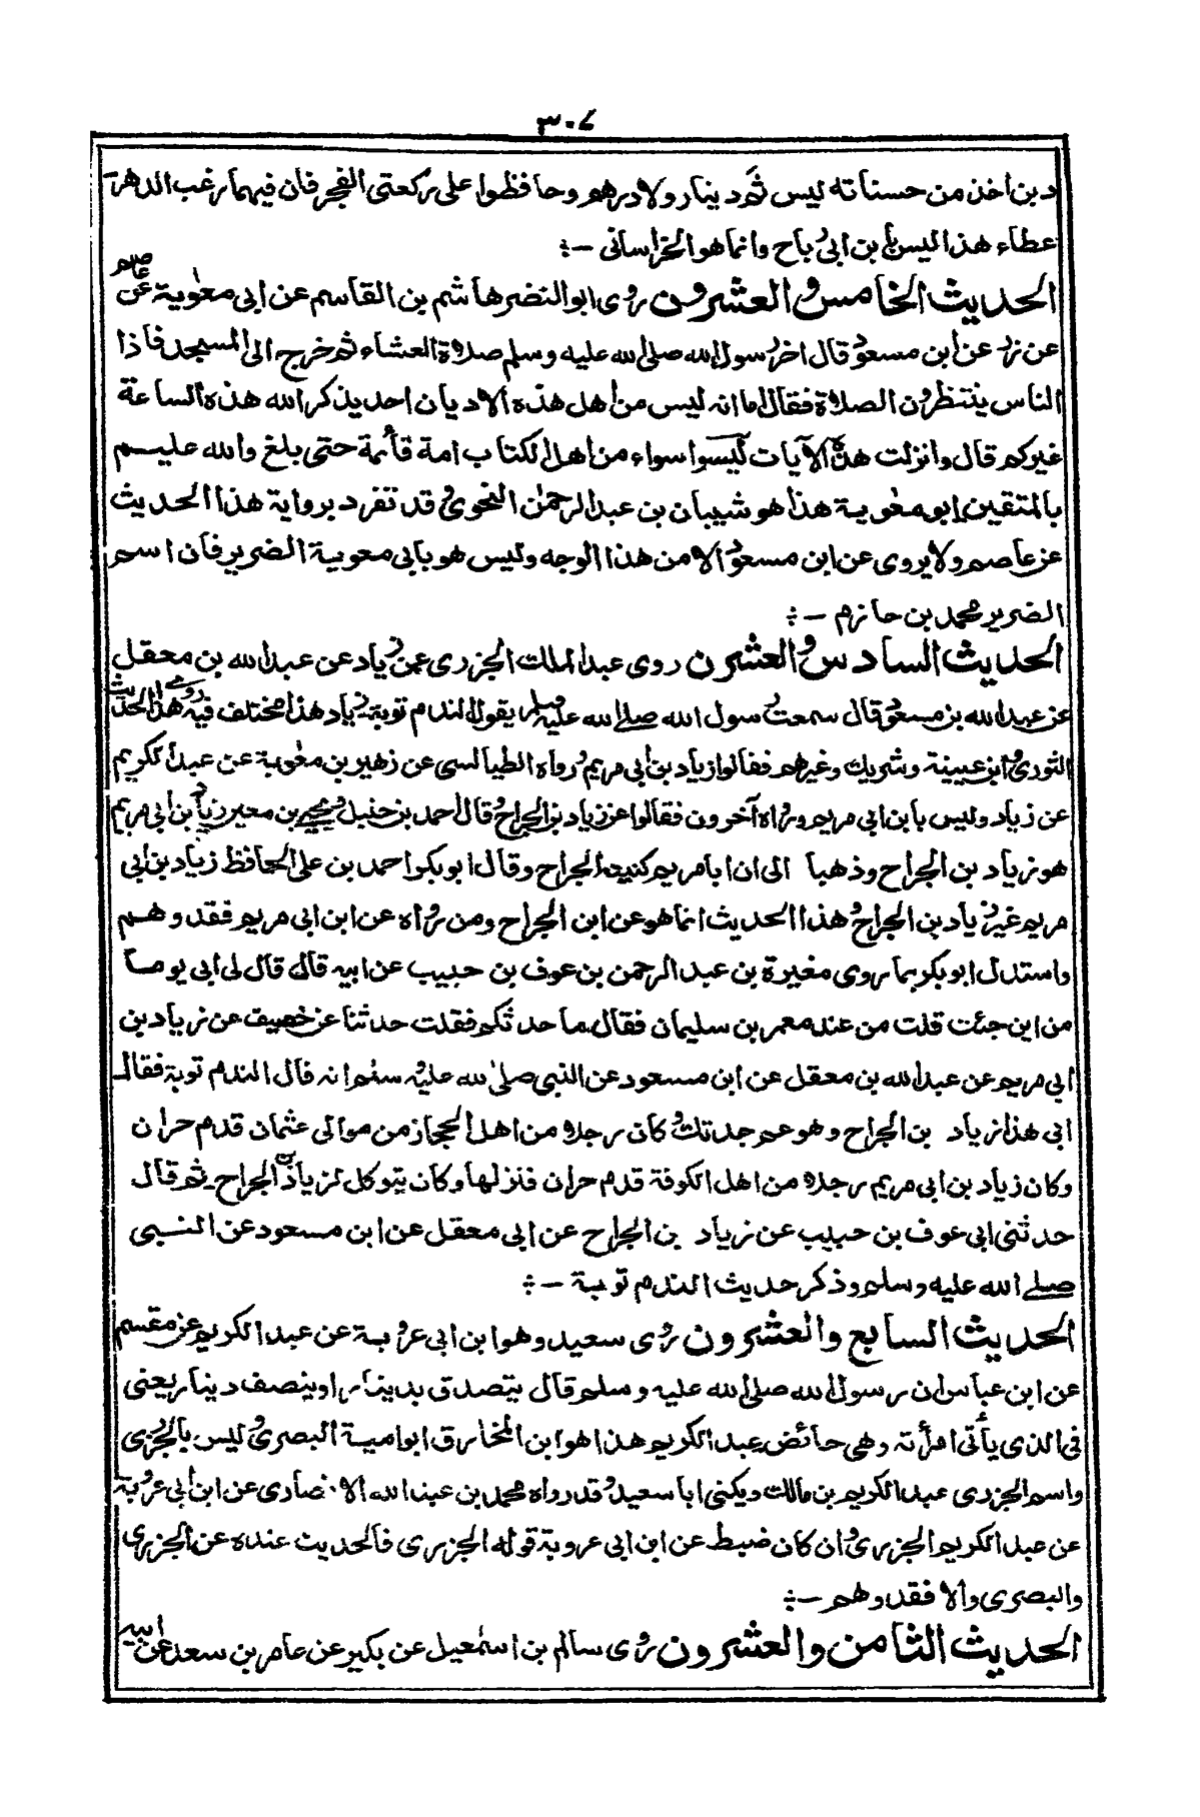 ٣٠٧
دين اخذ من حسناته ليس ثم دينار ولا درهم وحافظوا على ركعتى الفجر فان فيهما رغب الدهر
عطاء هذا ليس بابن ابى رباح وانما هو الخراسانى ــ :
الحديث الخامس والعشرون روى ابو النضر هاشم بن القاسم عن ابى معٰوية عن عاصم
عن زر عن ابن مسعود قال اخر رسول الله صلى الله عليه وسلم صلاة العشاء ثم خرج الى المسجد فاذا
الناس ينتظرون الصلاة فقال اما انه ليس من اهل هذه الاديان احد يذكر الله هذه الساعة
غيركم قال وانزلت هذه الآيات ليسوا سواء من اهل الكتاب امة قائمة حتى بلغ والله عليم
بالمتقين ابو معٰوية هذا هو شيبان بن عبد الرحمٰن النحوى وقد تفرد برواية هذا الحديث
عن عاصم ولا يروى عن ابن مسعود الا من هذا الوجه وليس هو بابى معوية الضرير فان اسم
الضرير محمد بن حازم ــ :
الحديث السادس والعشرن روى عبد الملك الجزرى عن زياد عن عبد الله بن معقل
عن عبد الله بن مسعود قال سمعت رسول الله صلے الله عليه وسلم يقول الندم توبة زياد هذا مختلف فيه روى هذا الحديث
الثورى وابن عيينة وشريك وغيرهم فقالوا زياد بن ابى مريم ورواه الطيالسى عن زهير بن معٰوية عن عبد الكريم
عن زياد وليس بابن ابى مريم ورواه آخرون فقالوا عن زياد بن الجراح وقال احمد بن حنبل ويحيى بن معين زياد بن ابى مريم
هو زياد بن الجراح وذهبا الى ان ابا مريم كنيته الجراح وقال ابو بكر احمد بن على الحافظ زياد بن ابى
مريم غير زياد بن الجراح وهذا الحديث انما هو عن ابن الجراح ومن رواه عن ابن ابى مريم فقد وهم
واستدل ابو بكر بما روى مغيرة بن عبد الرحمن بن عوف بن حبيب عن ابيه قال قال لى ابى يوما
من اين جئت قلت من عند معمر بن سليمان فقال ما حدثكم فقلت حدثنا عن خصيف عن زياد بن
ابى مريم عن عبد الله بن معقل عن ابن مسعود عن النبى صلى الله عليه وسلم انه قال الندم توبة فقال
ابى هذا زياد بن الجراح وهو عم جدتك وكان رجلا من اهل الحجاز من موالى عثمان قدم حران
وكان زياد بن ابى مريم رجلا من اهل الكوفة قدم حران فنزلها وكان يتوكل لزياد بن الجراح ثم قال
حدثنى ابى عوف بن حبيب عن زياد بن الجراح عن ابى معقل عن ابن مسعود عن النبى
صلے الله عليه وسلم وذكر حديث الندم توبة ــ :
الحديث السابع والعشرون روى سعيد وهو ابن ابى عروبة عن عبد الكريم عن مقسم
عن ابن عباس ان رسول الله صلى الله عليه وسلم قال يتصدق بدينار او بنصف دينار يعنى
فى الذى يأتى امرأته وهى حائض عبد الكريم هذا هو ابن المخارق ابو امية البصرى وليس بالجزرى
واسم الجزرى عبد الكريم بن مالك ويكنى ابا سعيد وقد رواه محمد بن عبد الله الانصارى عن ابن ابى عروبة
عن عبد الكريم الجزرى وان كان ضبط عن ابن ابى عروبة قوله الجزرى فالحديث عنده عن الجزرى
والبصرى والا فقد وهم ــ :
الحديث الثامن والعشرون روى سالم بن اسمٰعيل عن بكير عن عامر بن سعد عن ابيه